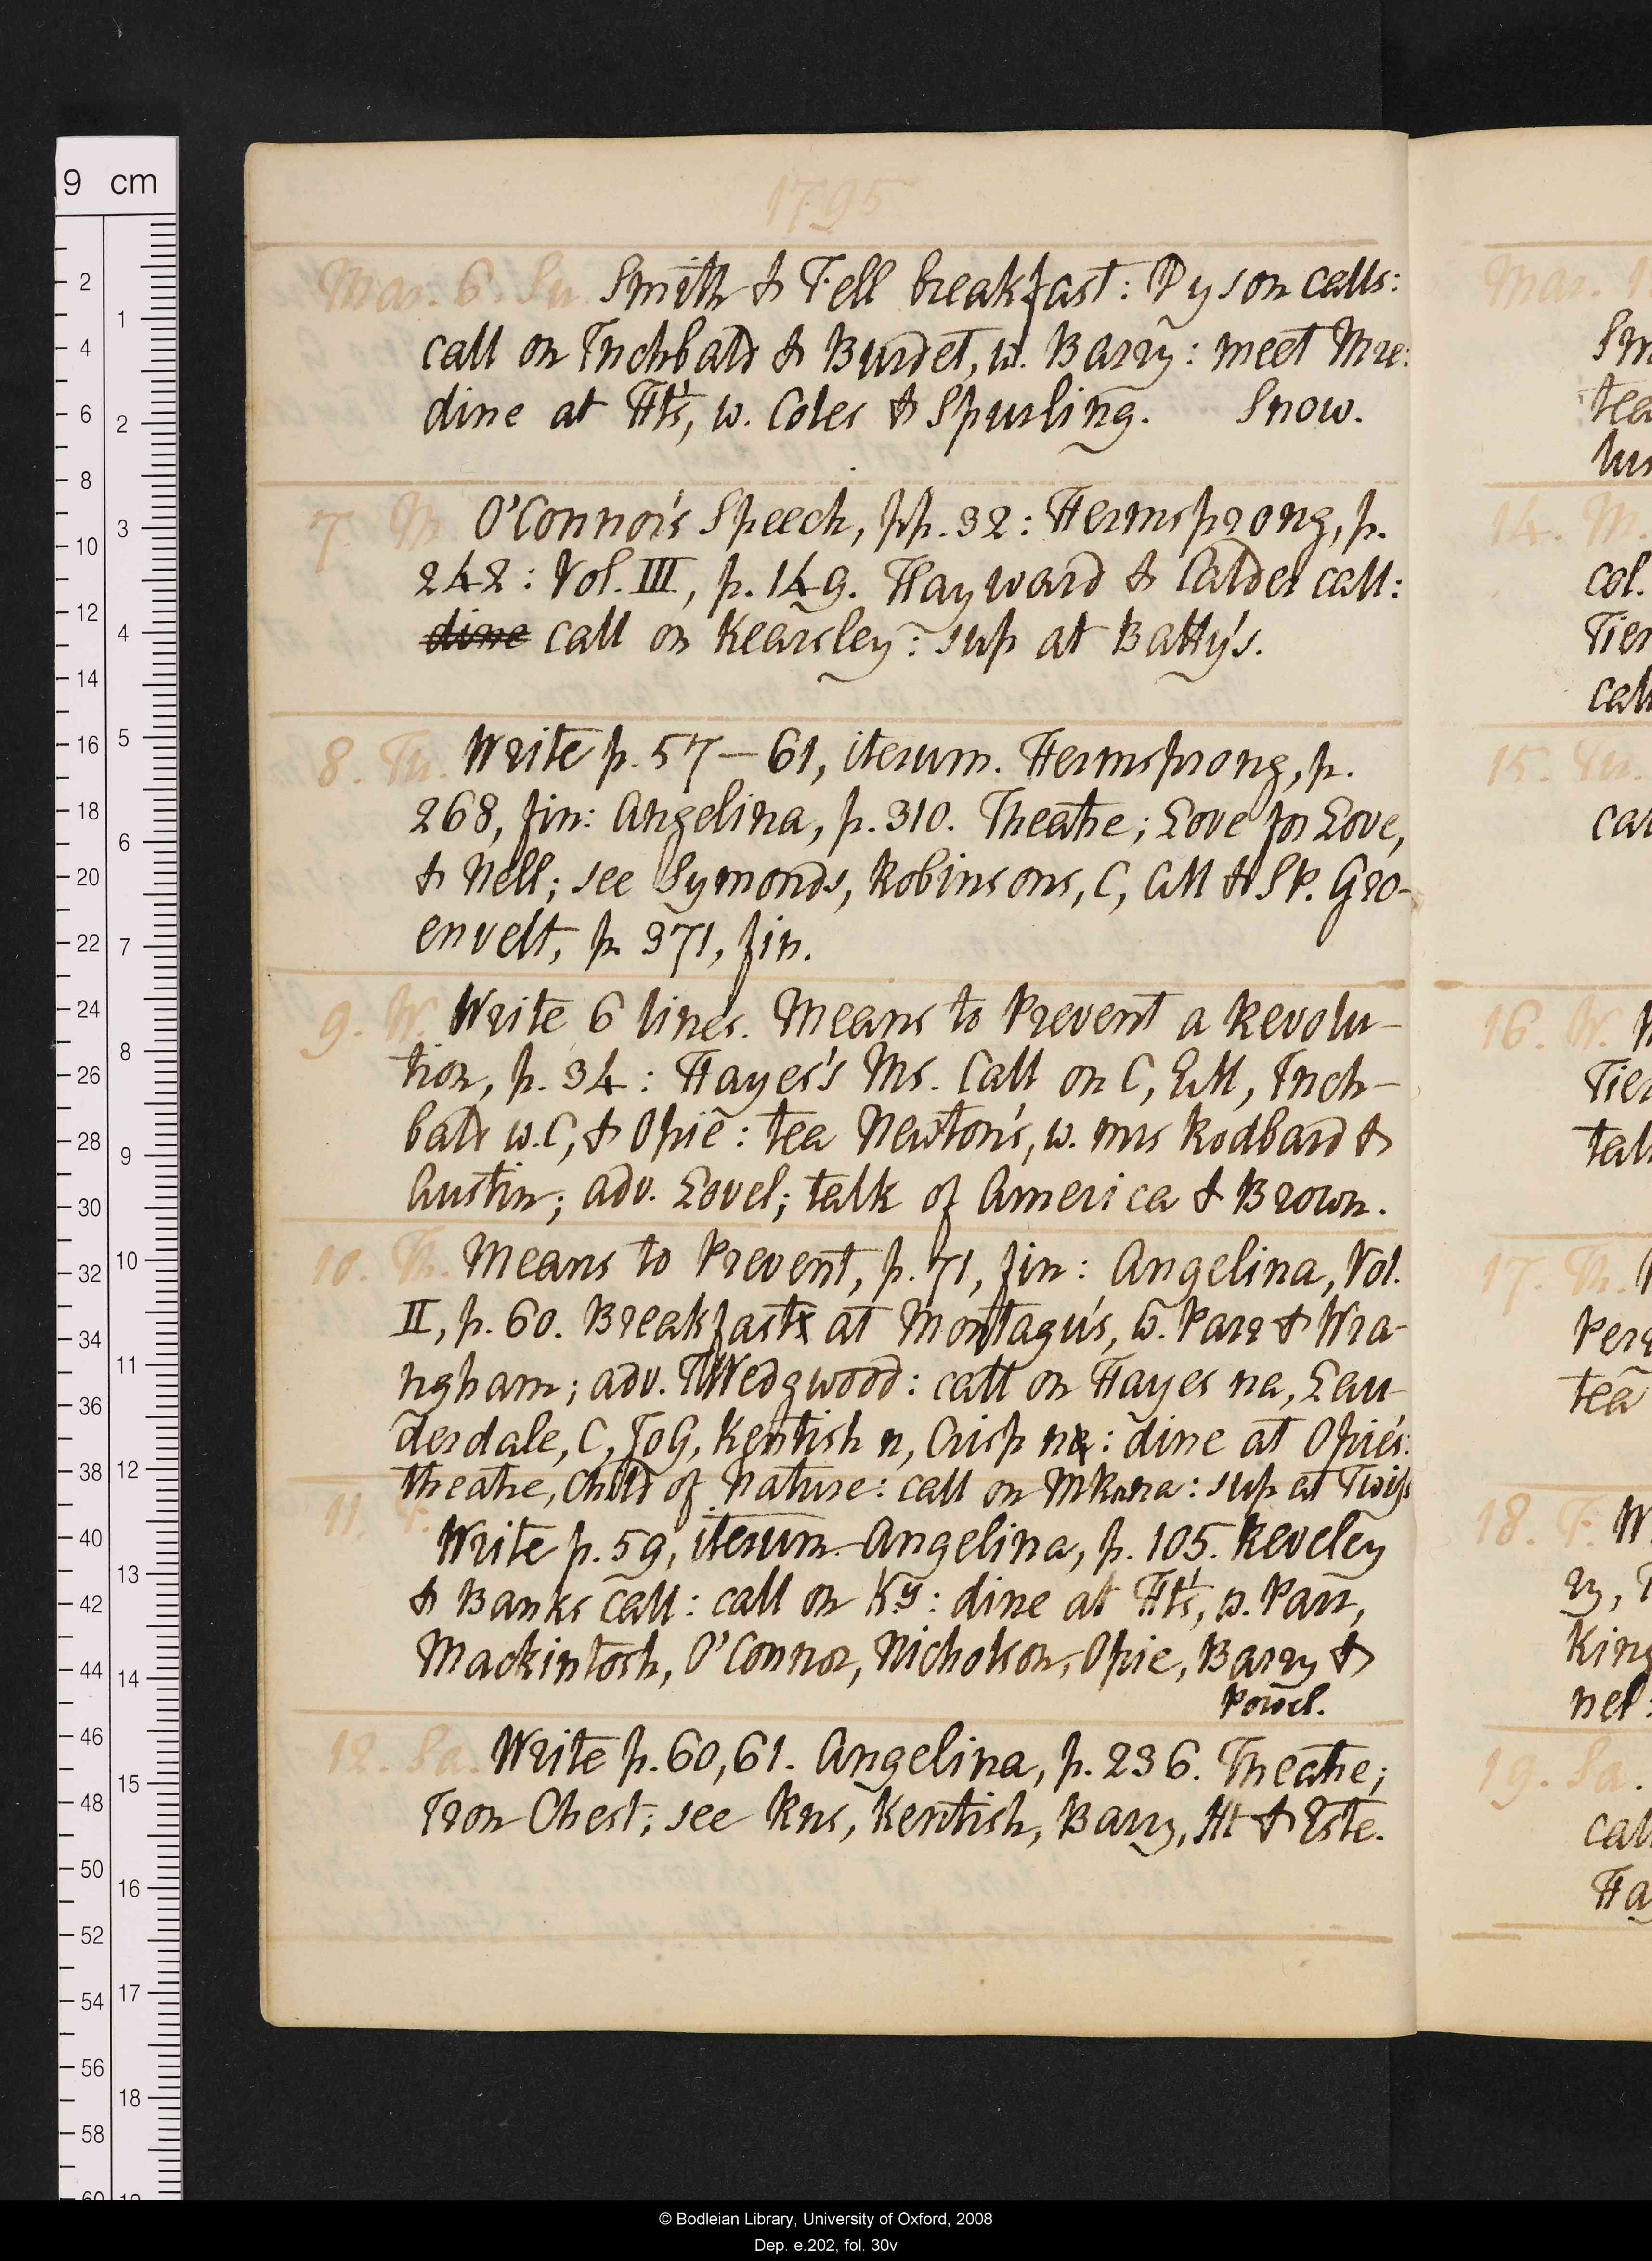 1795
Mar. 6. Su. Smith & Fell breakfast: Dyson calls:
call on Inchbald & Burdet, w. Barry: meet Mre:
dine at Ht's, w. Coles & Spurling. Snow.
7. M. O'Connor's Speech, pp. 32: Hermsprong, p.
242: Vol. III, p. 149. Hayward & Calder call:
dine call on Kearsley: sup at Batty's.
8. Tu. Write p. 57–61, iterum. Hermsprong, p.
268, fin: Angelina, p. 310. Theatre; Love for Love,
& Nell; see Symonds, Robinsons, C, AM & Sk. Gro-
envelt, p. 371, fin.
9. W. Write 6 lines. Means to Prevent a Revolu-
tion, p. 34: Hayes's Ms. Call on C, EM, Inch-
bald w. C, & Opie: tea Newton's, w. mrs Rodbard &
Austin; adv. Lovel; talk of America & Brown.
10. Th. Means to Prevent, p. 71, fin: Angelina, Vol.
II, p. 60. Breakfast at Montagu's, w. Parr & Wra-
ngham; adv. TWedgwood: call on Hayes na, Lau-
derdale, C, JoG, Kentish n, Crisp n: dine at Opie's:
theatre, Child of Nature: call on MRn na: sup at Twiss
11. F.
Write p. 59, iterum. Angelina, p. 105. Reveley
& Banks call: call on Ky: dine at Ht's, w. Parr,
Mackintosh, O'Connor, Nicholson, Opie, Barry &
Powel.
12. Sa. Write p. 60, 61. Angelina, p. 236. Theatre;
Iron Chest; see Rns, Kentish, Barry, Ht & Este.
Mar. 1
tea
14. M.
col.
Tier
call
15. Tu.
cal
16. W.
Tier
talk
17. Th.
tea
18. F. W
King
nel:
19. Sa.
call
Ha
9 cm
2 4 6 8 10 12 14 16 18 20 22 24 26 28 30 32 34 36 38 40 42 44 46 48 50 52 54 56 58 60
1 2 3 4 5 6 7 8 9 10 11 12 13 14 15 16 17 18 19
© Bodleian Library, University of Oxford, 2008
Dep. e.202, fol. 30v